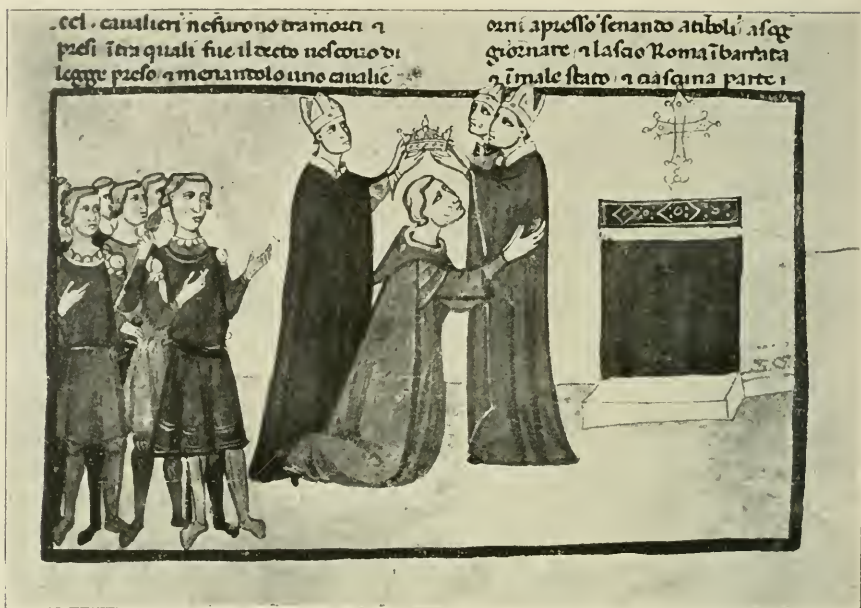 .ccl. cavalieri ne furono tra morti ⁊
presi ītra quali fue il decto vescovo di
legge preso ⁊ menandolo uno cavalie
orni apresso senando a tiboli a sog
giornare ⁊ lascio Roma ībarrata
⁊ ī male stato ⁊ ciascuna parte i